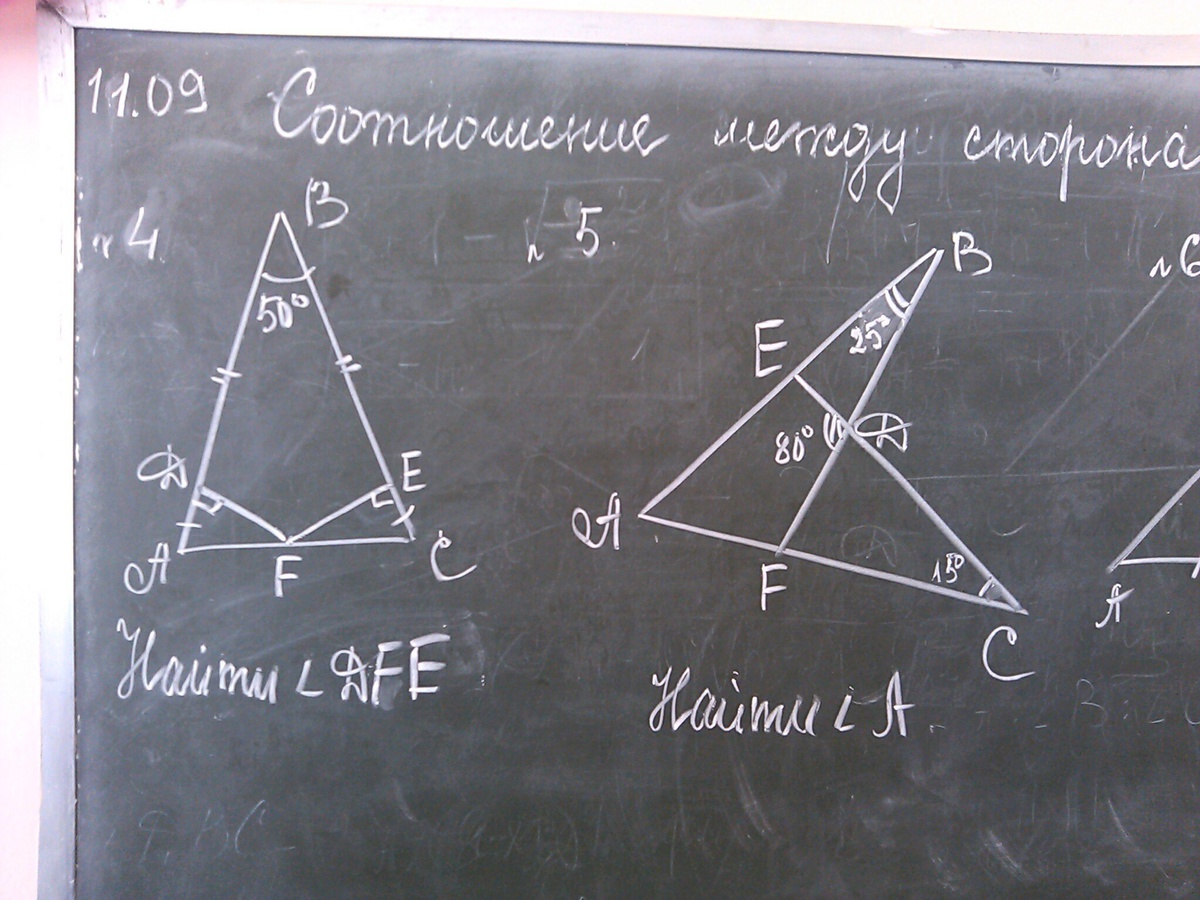 11.09 Соотношение между сторона
№4
B
50°
D
E
A
F
C
Найти ∠DFE
№5.
B
25°
E
80°
D
A
F
15°
C
Найти ∠A
№6
A